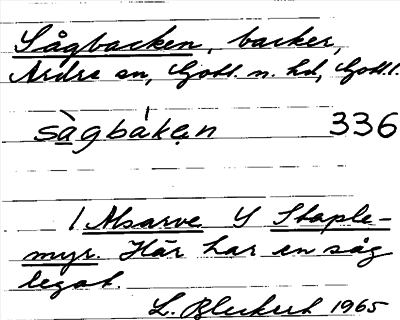 Sågbacken, backer,
Ardre sn, Gotl. n. hd, Gotl. l.
sàgbáken 336
/ Alsarve Y Staple-
myr. Här har en såg
legat.
L. Bleckert 1965